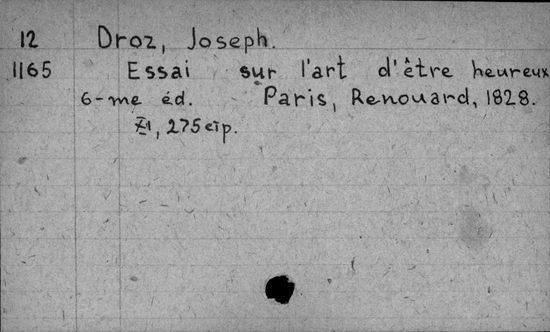 12 Droz, Joseph.
1165 Essai sur l'art d'être heureux
6-me éd. Paris, Renouard, 1828.
XI, 275 стр.